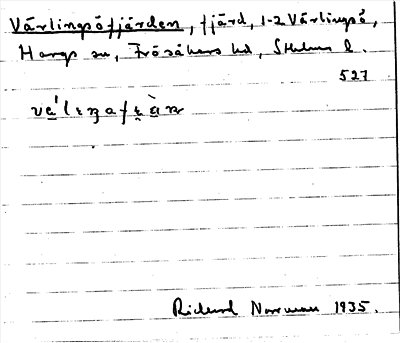 Värlingsöfjärden, fjärd, 1-2 Värlingsö,
Hargs sn, Frösåkers hd, Sthlms l.
527
Rickard Norrman 1935.